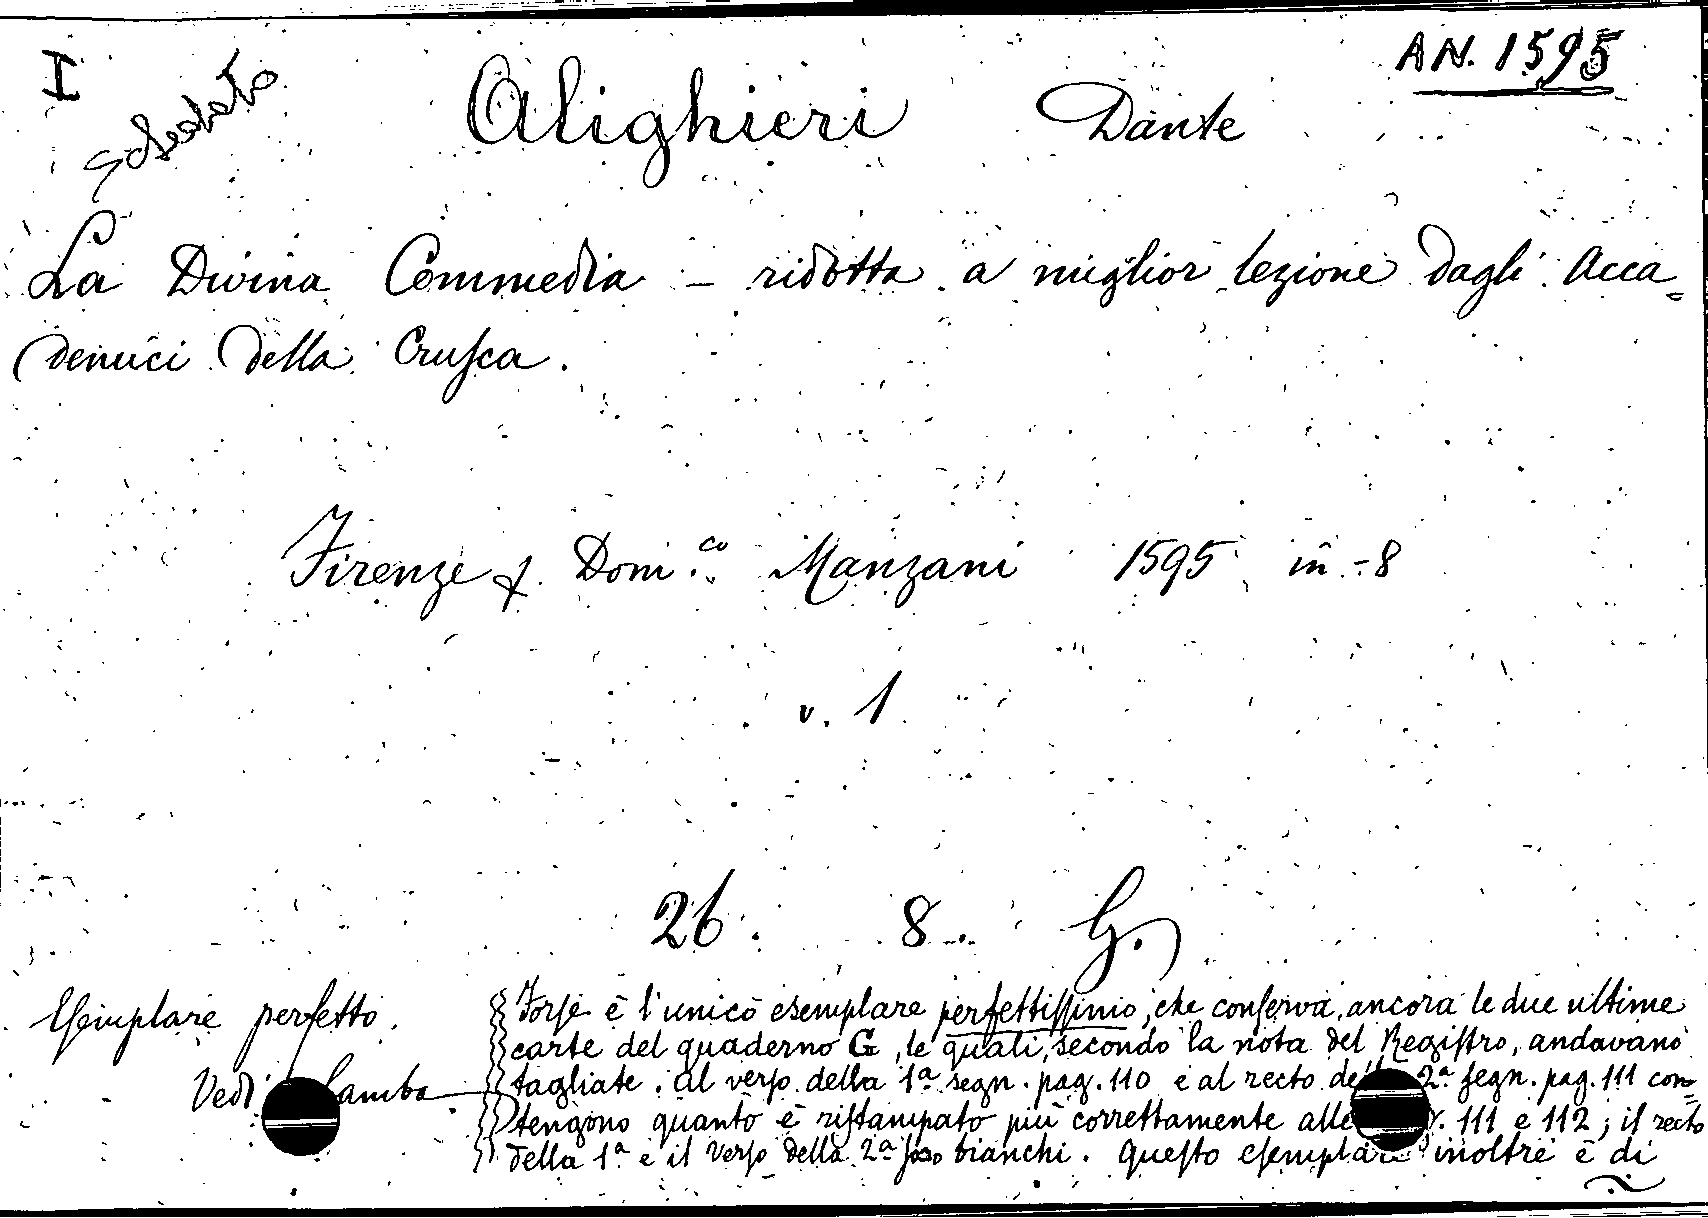 I
Schedato
AN. 1595
Alighieri Dante
La Divina Commedia – ridotta a miglior lezione dagli Acca=
demici della Crusca.
Firenze Dom.co Manzani 1595 in-8
v. 1
26. 8. G.
Esemplare perfetto.
Vedi Gamba
Forse è l'unico esemplare perfettissimo, che conserva, ancora le due ultime
carte del quaderno G, le quali, secondo la nota del Registro, andavano
tagliate. Al verso della 1ª segn. pag. 110 e al recto della 2ª segn. pag. 111 con=
tengono quanto è ristampato più correttamente alle 111 e 112; il recto
della 1ª e il verso della 2ª sono bianchi. Questo esemplare inoltre è di